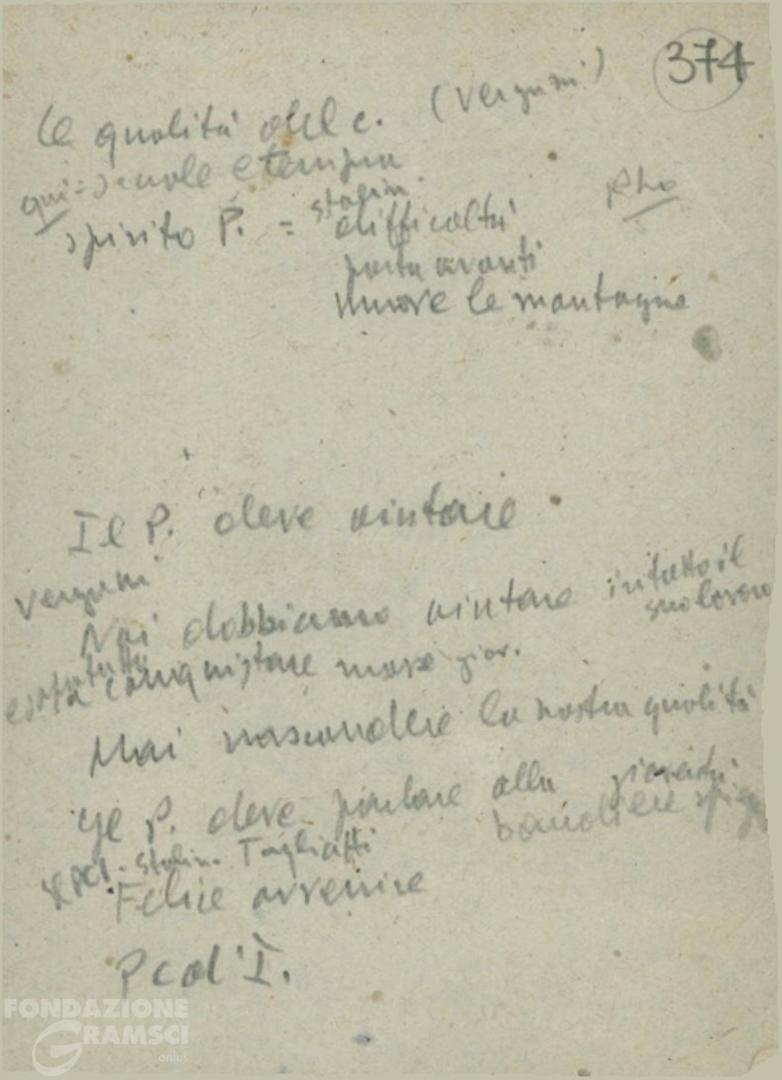 374
le qualità del c. (Vergani)
qui = scuole e tempra
spirito P. = stalin difficoltà
Rho
porta avanti
muove le montagne
Il P. deve aiutare
Vergani
Noi dobbiamo aiutare in tutto il suo lavoro
soprattutto a conquistare masse giov.
Mai nascondere la nostra qualità
Il P. deve parlare alla gioventù
bandiere
Il PCI - Stalin - Togliatti
Felice avvenire
P c d' I.
FONDAZIONE
GRAMSCI
onlus